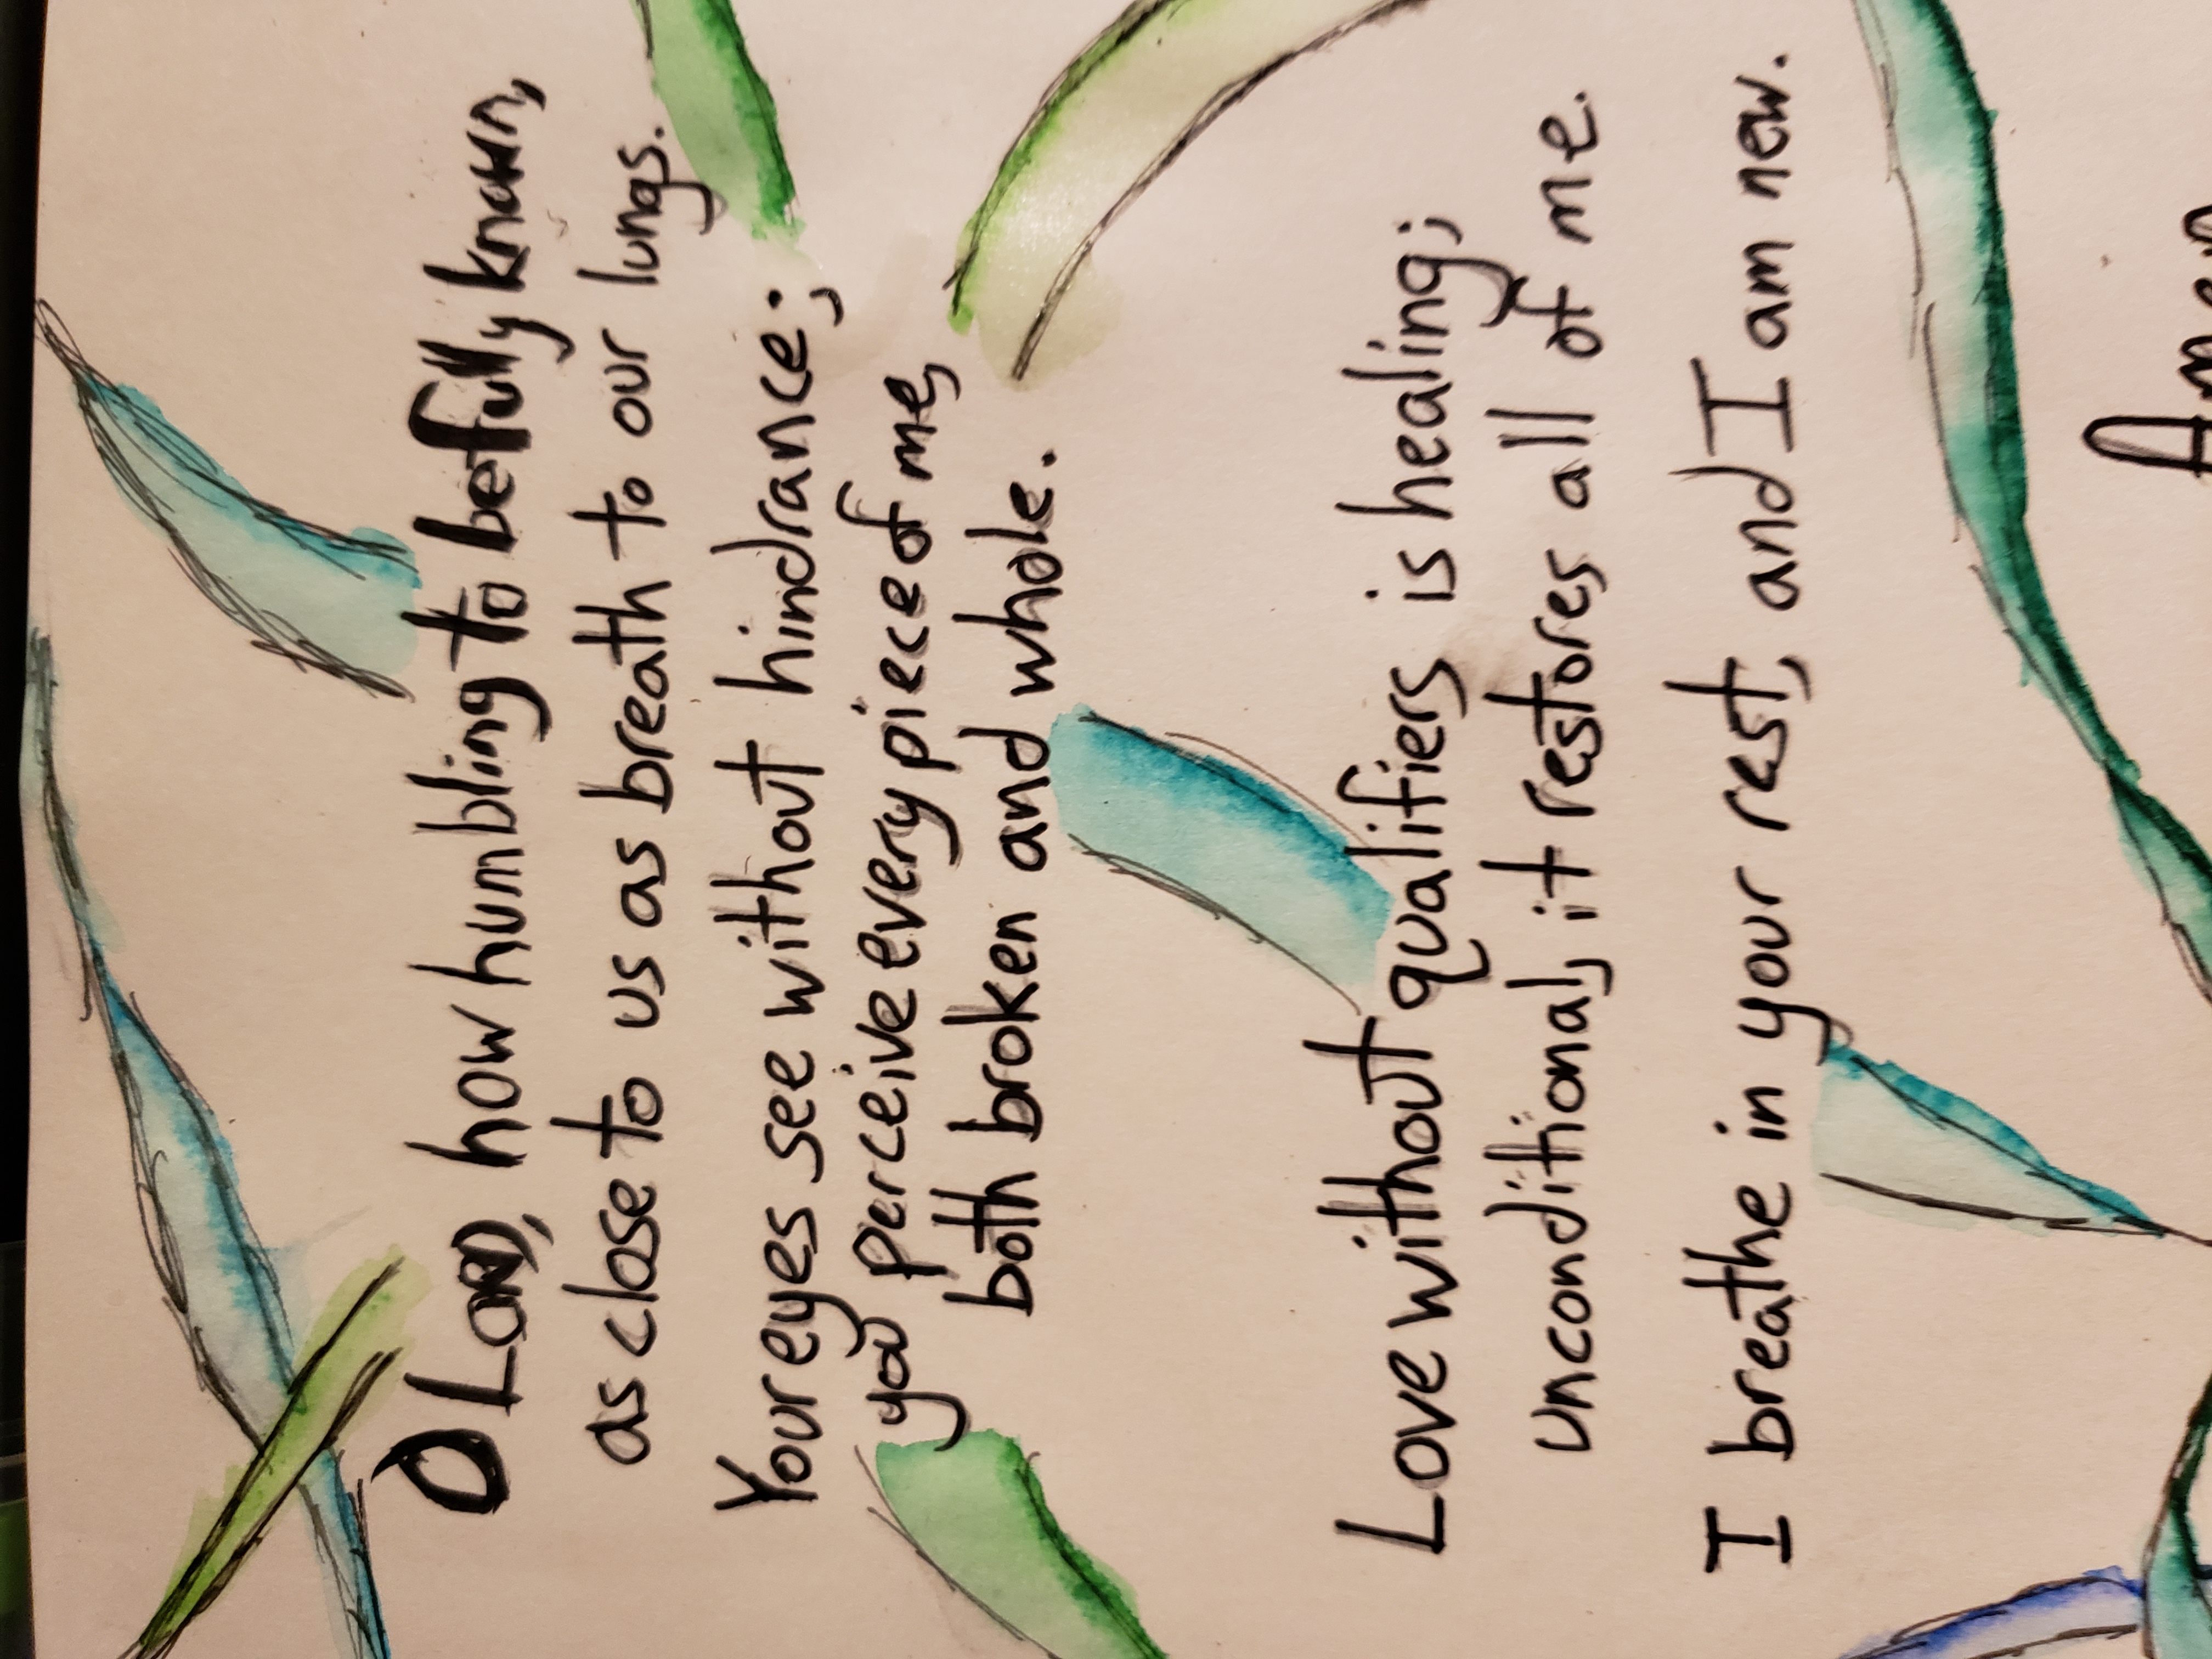 O LORD, how humbling to be fully known,
as close to us as breath to our lungs.
Your eyes see without hindrance;
you perceive every piece of me,
both broken and whole.
Love without qualifiers is healing;
unconditional, it restores all of me.
I breathe in your rest, and I am new.
Amen